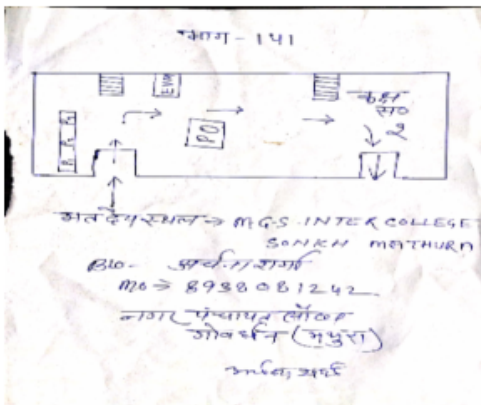 भाग - 141
EVM
कक्ष
स०
2
PO
मतदेय स्थल → M.G.S. INTER COLLEGE
SONKH MATHURA
BLO - अर्चना शर्मा
MO → 8938081242
नगर पंचायत सौंख
गोवर्धन (मथुरा)